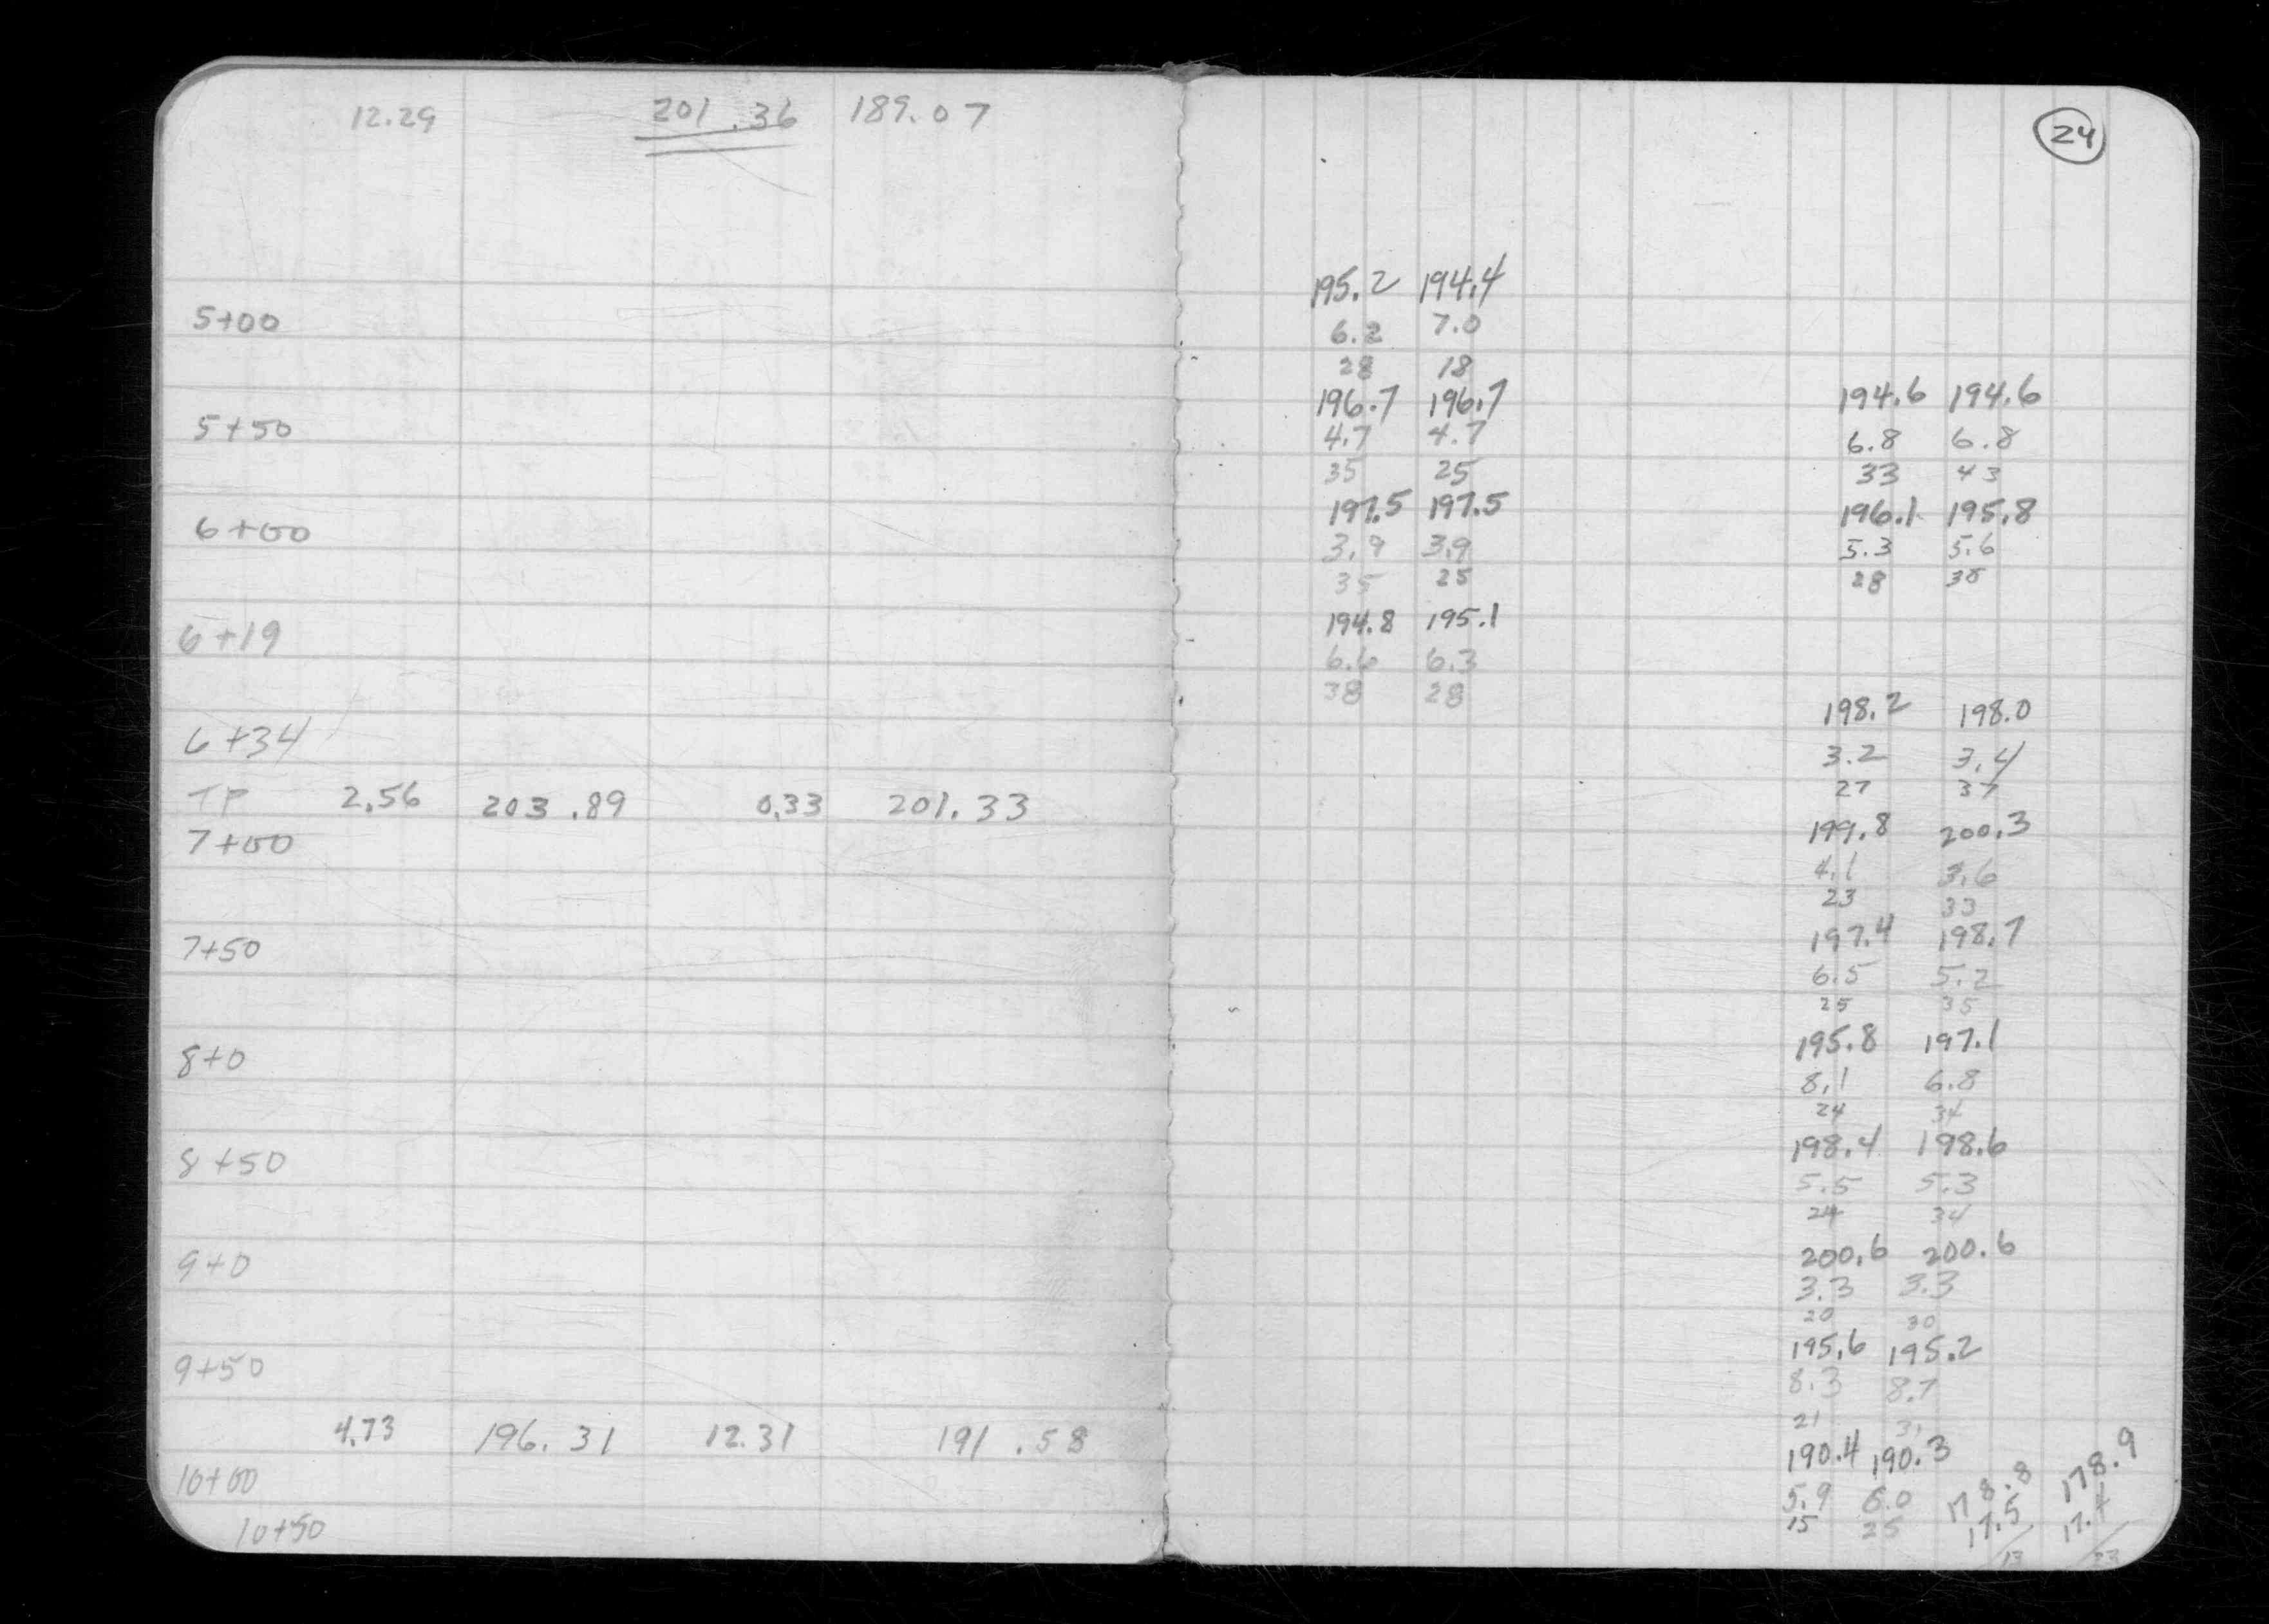 12.29 201.36 189.07
24
195.2 194.4
5+00 6.2 7.0
28 18
196.7 196.7 194.6 194.6
5+50 4.7 4.7 6.8 6.8
35 25 33 43
197.5 197.5 196.1 195.8
6+00 3.9 3.9 5.3 5.6
35 25 28 38
194.8 195.1
6+19 6.6 6.3
38 28
198.2 198.0
6+34 3.2 3.4
27 37
TP 2.56 203.89 0.33 201.33
199.8 200.3
7+00 4.1 3.6
23 33
197.4 198.7
7+50 6.5 5.2
25 35
195.8 197.1
8+0 8.1 6.8
24 34
198.4 198.6
8+50 5.5 5.3
24 34
200.6 200.6
9+0 3.3 3.3
20 30
195.6 195.2
9+50 8.3 8.7
21 31
4.73 196.31 12.31 191.58
190.4 190.3 178.8 178.9
10+00 5.9 6.0 17.5 17.4
15 25 13 23
10+50